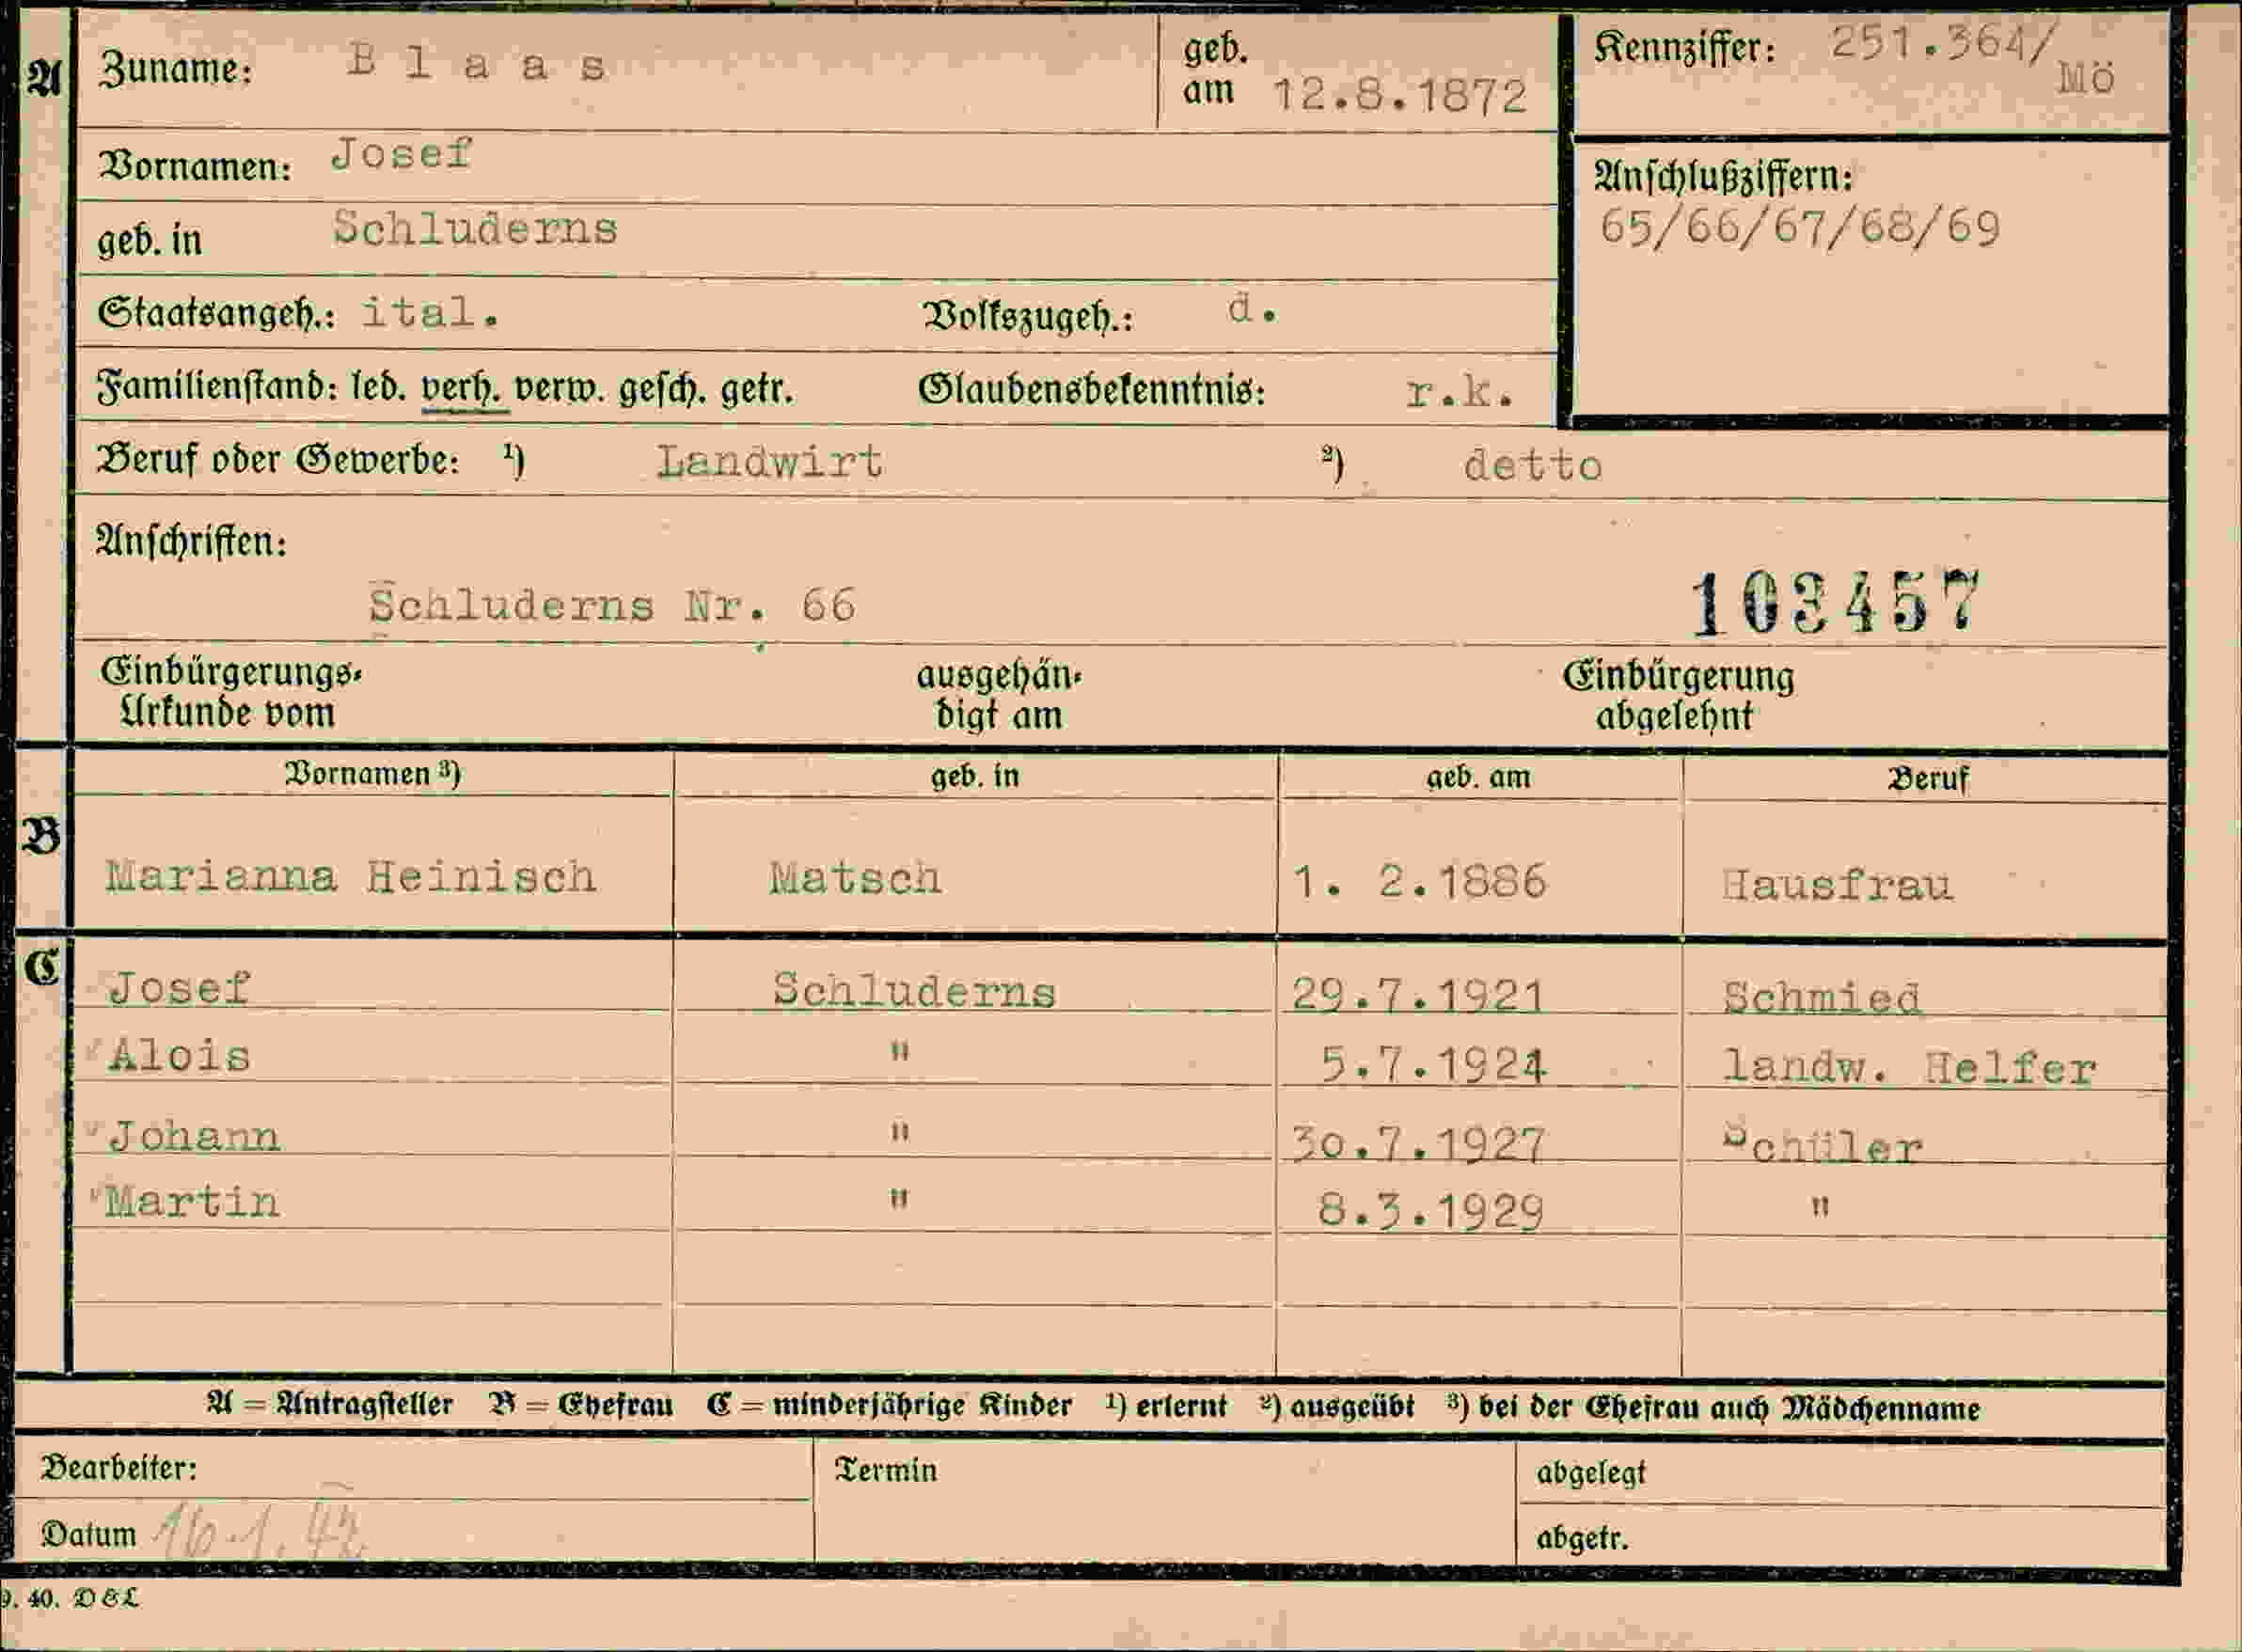 A Zuname: Blaas geb. am 12.8.1872 Kennziffer: 251.364/Mö
Vornamen: Josef Anschlußziffern:
65/66/67/68/69
geb. in Schluderns
Staatsangeh.: ital. Volkszugeh.: d.
Familienstand: led. verh. verw. gesch. getr. Glaubensbekenntnis: r.k.
Beruf oder Gewerbe: ¹) Landwirt ²) detto
Anschriften:
Schluderns Nr. 66 103457
Einbürgerungs- ausgehän- Einbürgerung
Urkunde vom digt am abgelehnt
Vornamen ³) geb. in geb. am Beruf
B Marianna Heinisch Matsch 1. 2.1886 Hausfrau
C Josef Schluderns 29.7.1921 Schmied
Alois " 5.7.1924 landw. Helfer
Johann " 30.7.1927 Schüler
Martin " 8.3.1929 "
A = Antragsteller B = Ehefrau C = minderjährige Kinder ¹) erlernt ²) ausgeübt ³) bei der Ehefrau auch Mädchenname
Bearbeiter: Termin abgelegt
Datum 16.1.42 abgetr.
9. 40. D&L